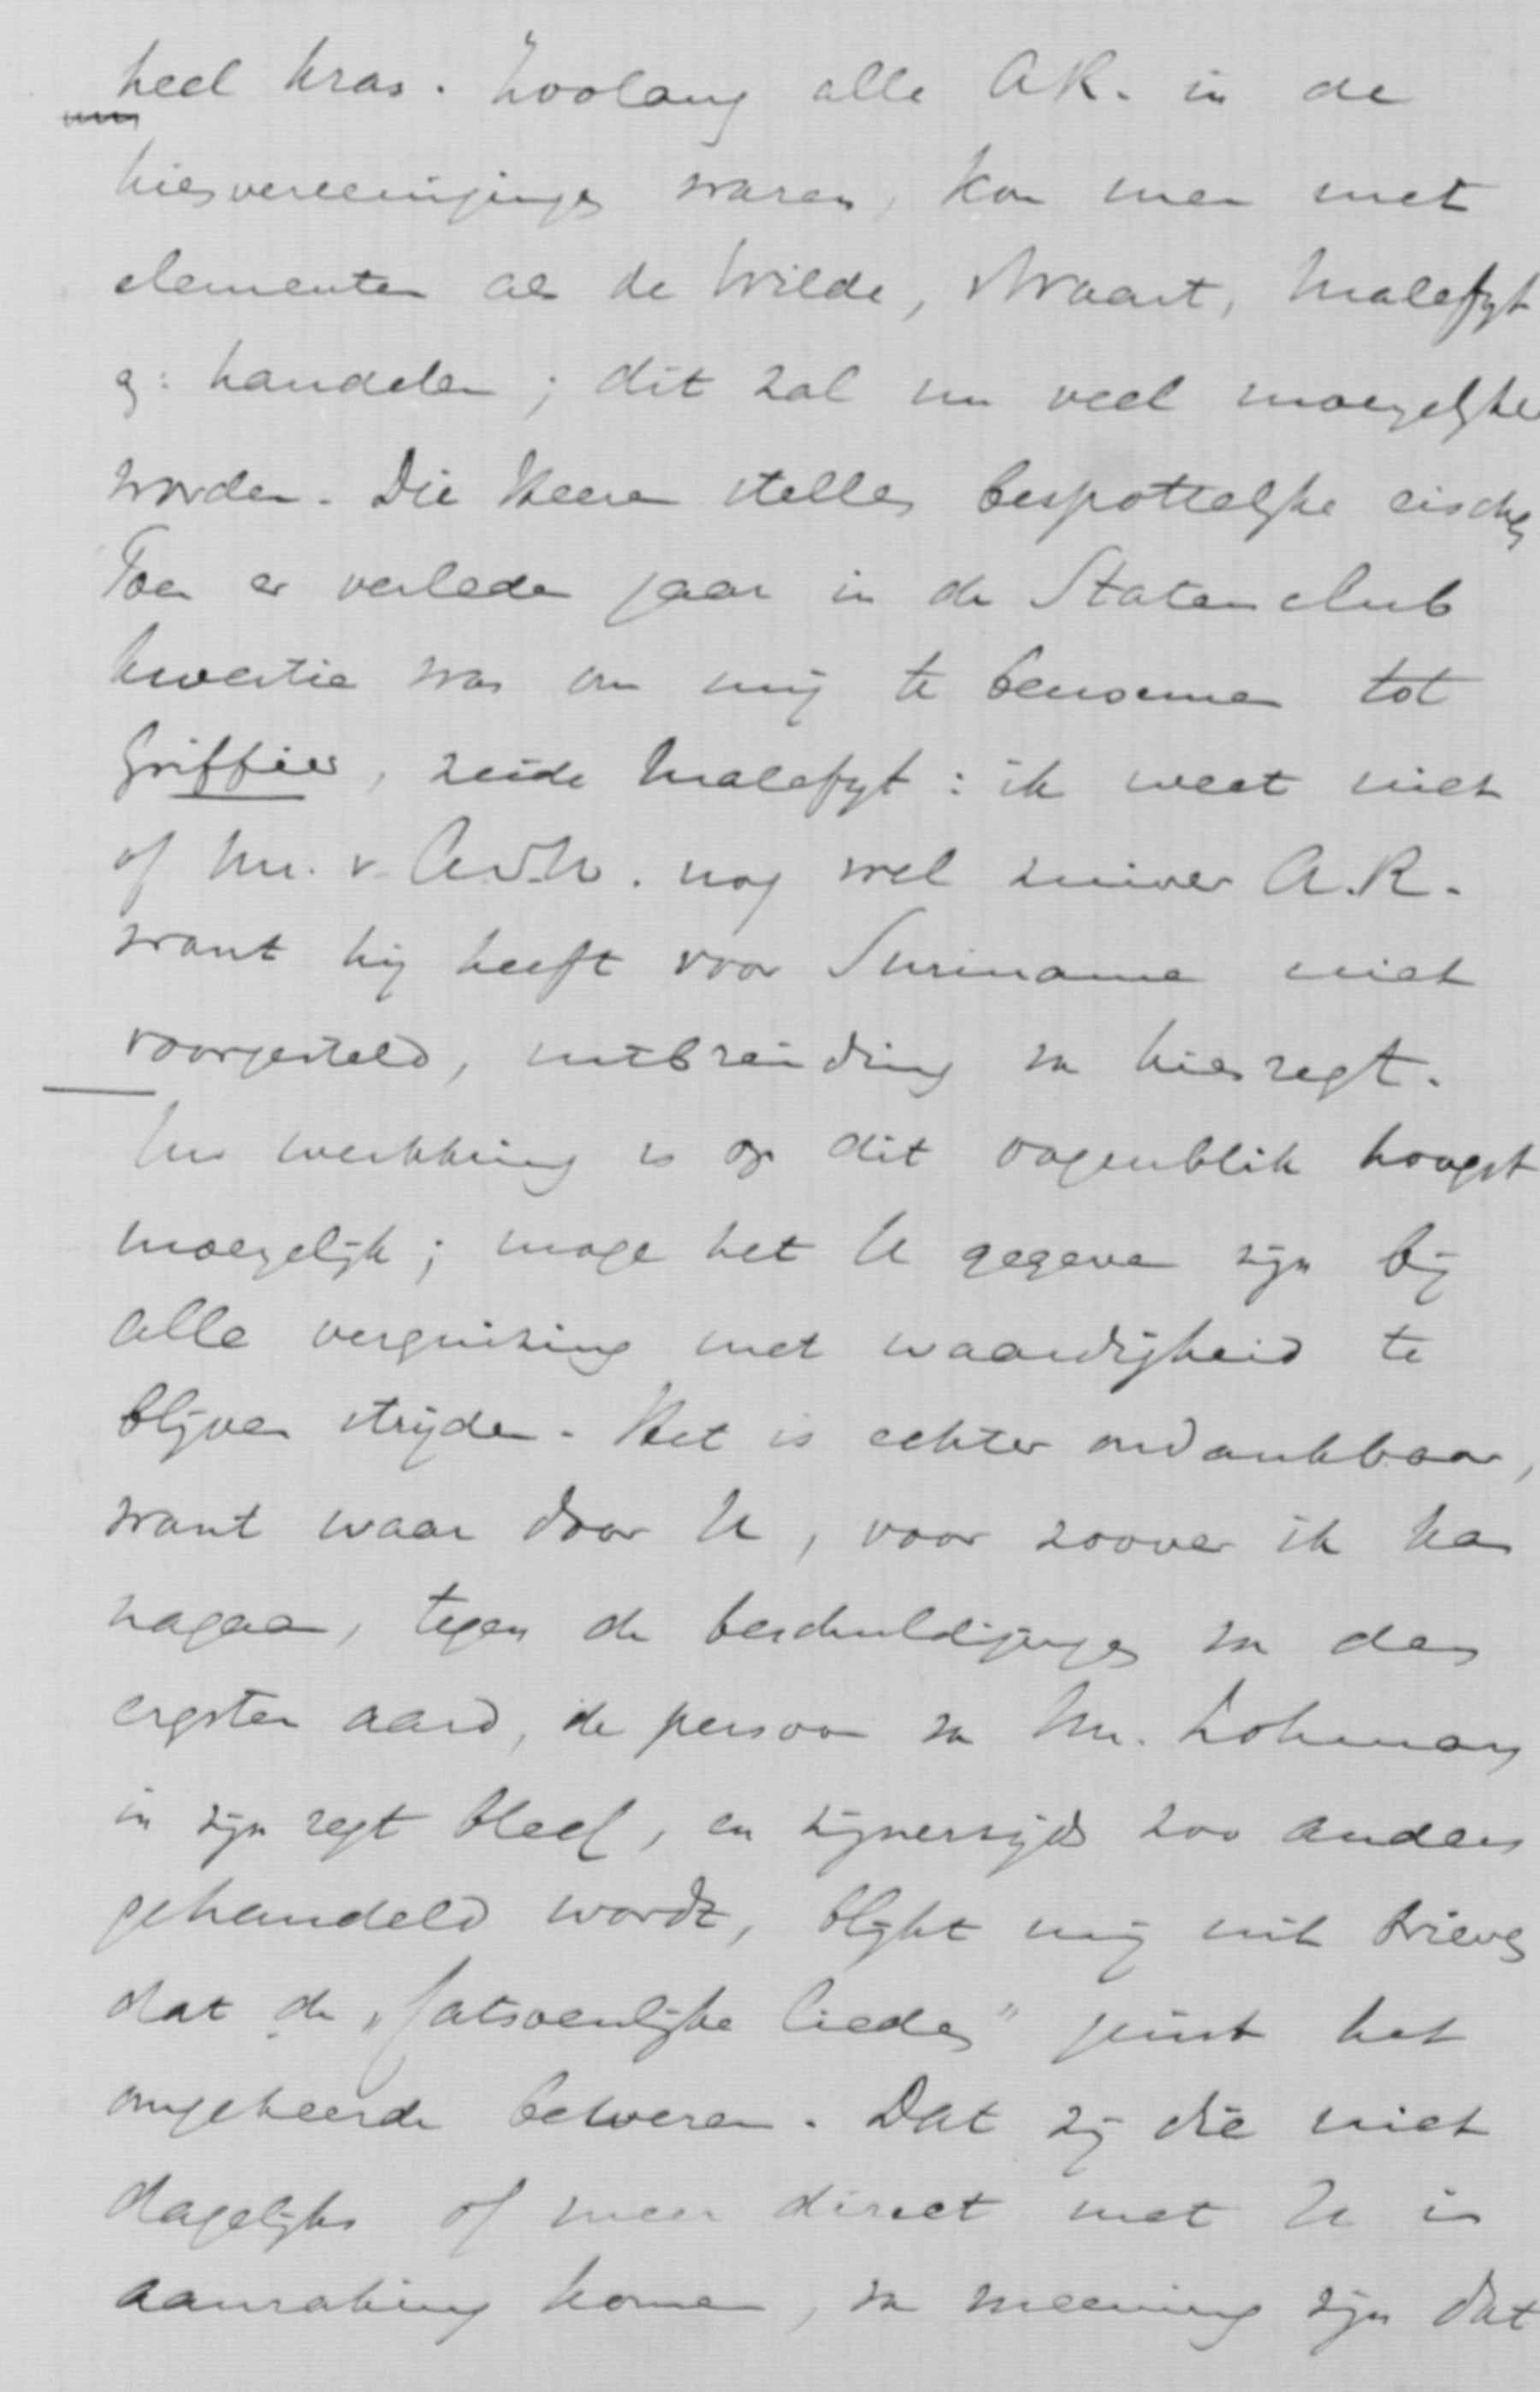 heel kras. Zoolang alle AR. in de
kiesvereenigingen waren, kon men met
elementen als de Wilde, Zwaart, Malefyt
g: handelen; dit zal nu veel moeyelyker
worden. Die Heeren stellen bespottelyke eischen
Toen er verleden jaar in de Statenclub
kwestie was om mij te benoemen tot
Griffier, zeide Malefyt: ik weet niet
of Mr. v. A.v.W. nog wel zuiver A.R.
want hij heeft voor Suriname niet
voorgesteld, uitbreiding van kiesregt.
Uw werkkring is op dit oogenblik hoogst
moeyelijk; moge het U gegeven zijn bij
alle verguizing met waardigheid te
blijven strijden. Het is echter ondankbaar,
want waar door U, voor zoover ik kan
nagaan, tegen de beschuldigingen van den
ergsten aard, de persoon van Mr. Lohman
in zijn regt bleef, en zijnerzijds zoo anders
gehandeld wordt, blykt mij uit brieven
dat de „fatsoenlijke lieden" juist het
omgekeerde beweren. Dat zij die niet
dagelijks of meer direct met U in
aanraking komen, van meening zijn dat